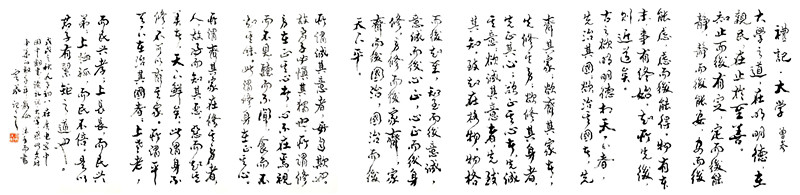 禮記 大學 曾參
大學之道在明明德在
親民在止於至善
知止而後有定定而後能
靜靜而後能安安而後
能慮慮而後能得物有本
末事有終始知所先後
則近道矣
古之欲明明德於天下者
先治其國欲治其國者先
齊其家欲齊其家者
先修其身欲修其身者
先正其心欲正其心者先誠
其意欲誠其意者先致
其知致知在格物物格
而後知至知至而後意誠
意誠而後心正心正而後
身修身修而後家齊家
齊而後國治國治而後
天下平
所謂誠其意者毋自欺也
故君子必慎其獨也所謂修
身在正其心者心不在焉視
而不見聽而不聞食而不
知其味此謂修身在正其心
所謂齊其家在修其身者
人故好而知其惡惡而知其
美者天下鮮矣此謂身不
修不可以齊其家所謂平
天下在治其國者上老老
而民興孝上長長而民興
弟上恤孤而民不倍是以
君子有絜矩之道也